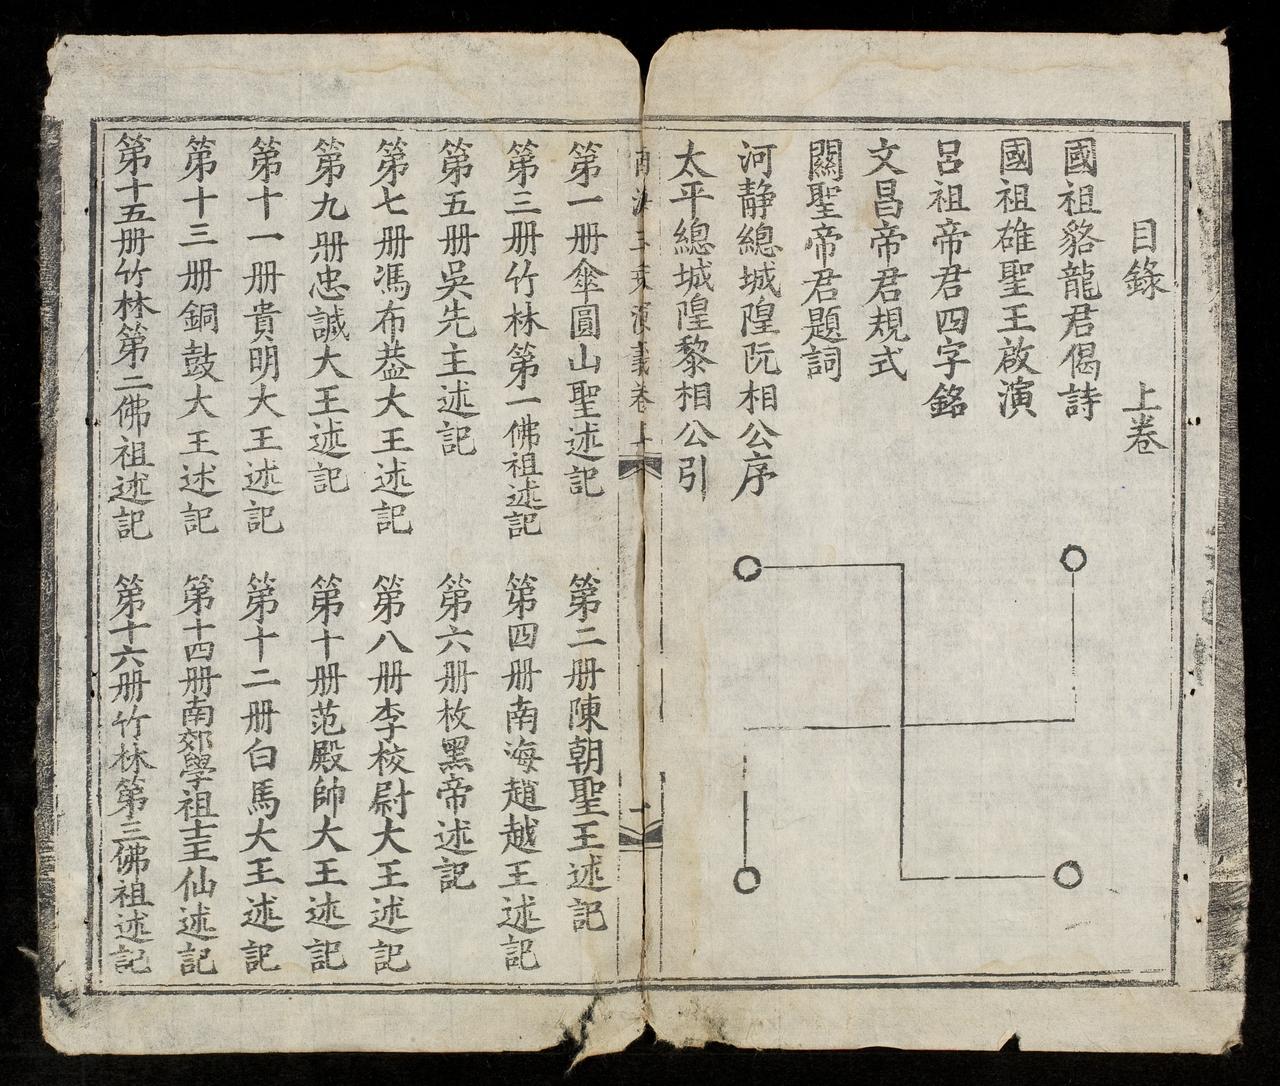 目錄 上卷
國祖貉龍君偈詩
國祖雄聖王啟演
呂祖帝君四字銘
文昌帝君規式
關聖帝君題詞
河静總城隍阮相公序
太平總城隍黎相公引
演義卷上
二
第一册傘圓山聖述記
第二册陳朝聖王述記
第三册竹林第一佛祖述記
第四册南海趙越王述記
第五册吳先主述記
第六册枚黑帝述記
第七册馮布蓋大王述記
第八册李校尉大王述記
第九册忠誠大王述記
第十册范殿帥大王述記
第十一册貴明大王述記
第十二册白馬大王述記
第十三册銅鼓大王述記
第十四册南郊學祖士王仙述記
第十五册竹林第二佛祖述記
第十六册竹林第三佛祖述記